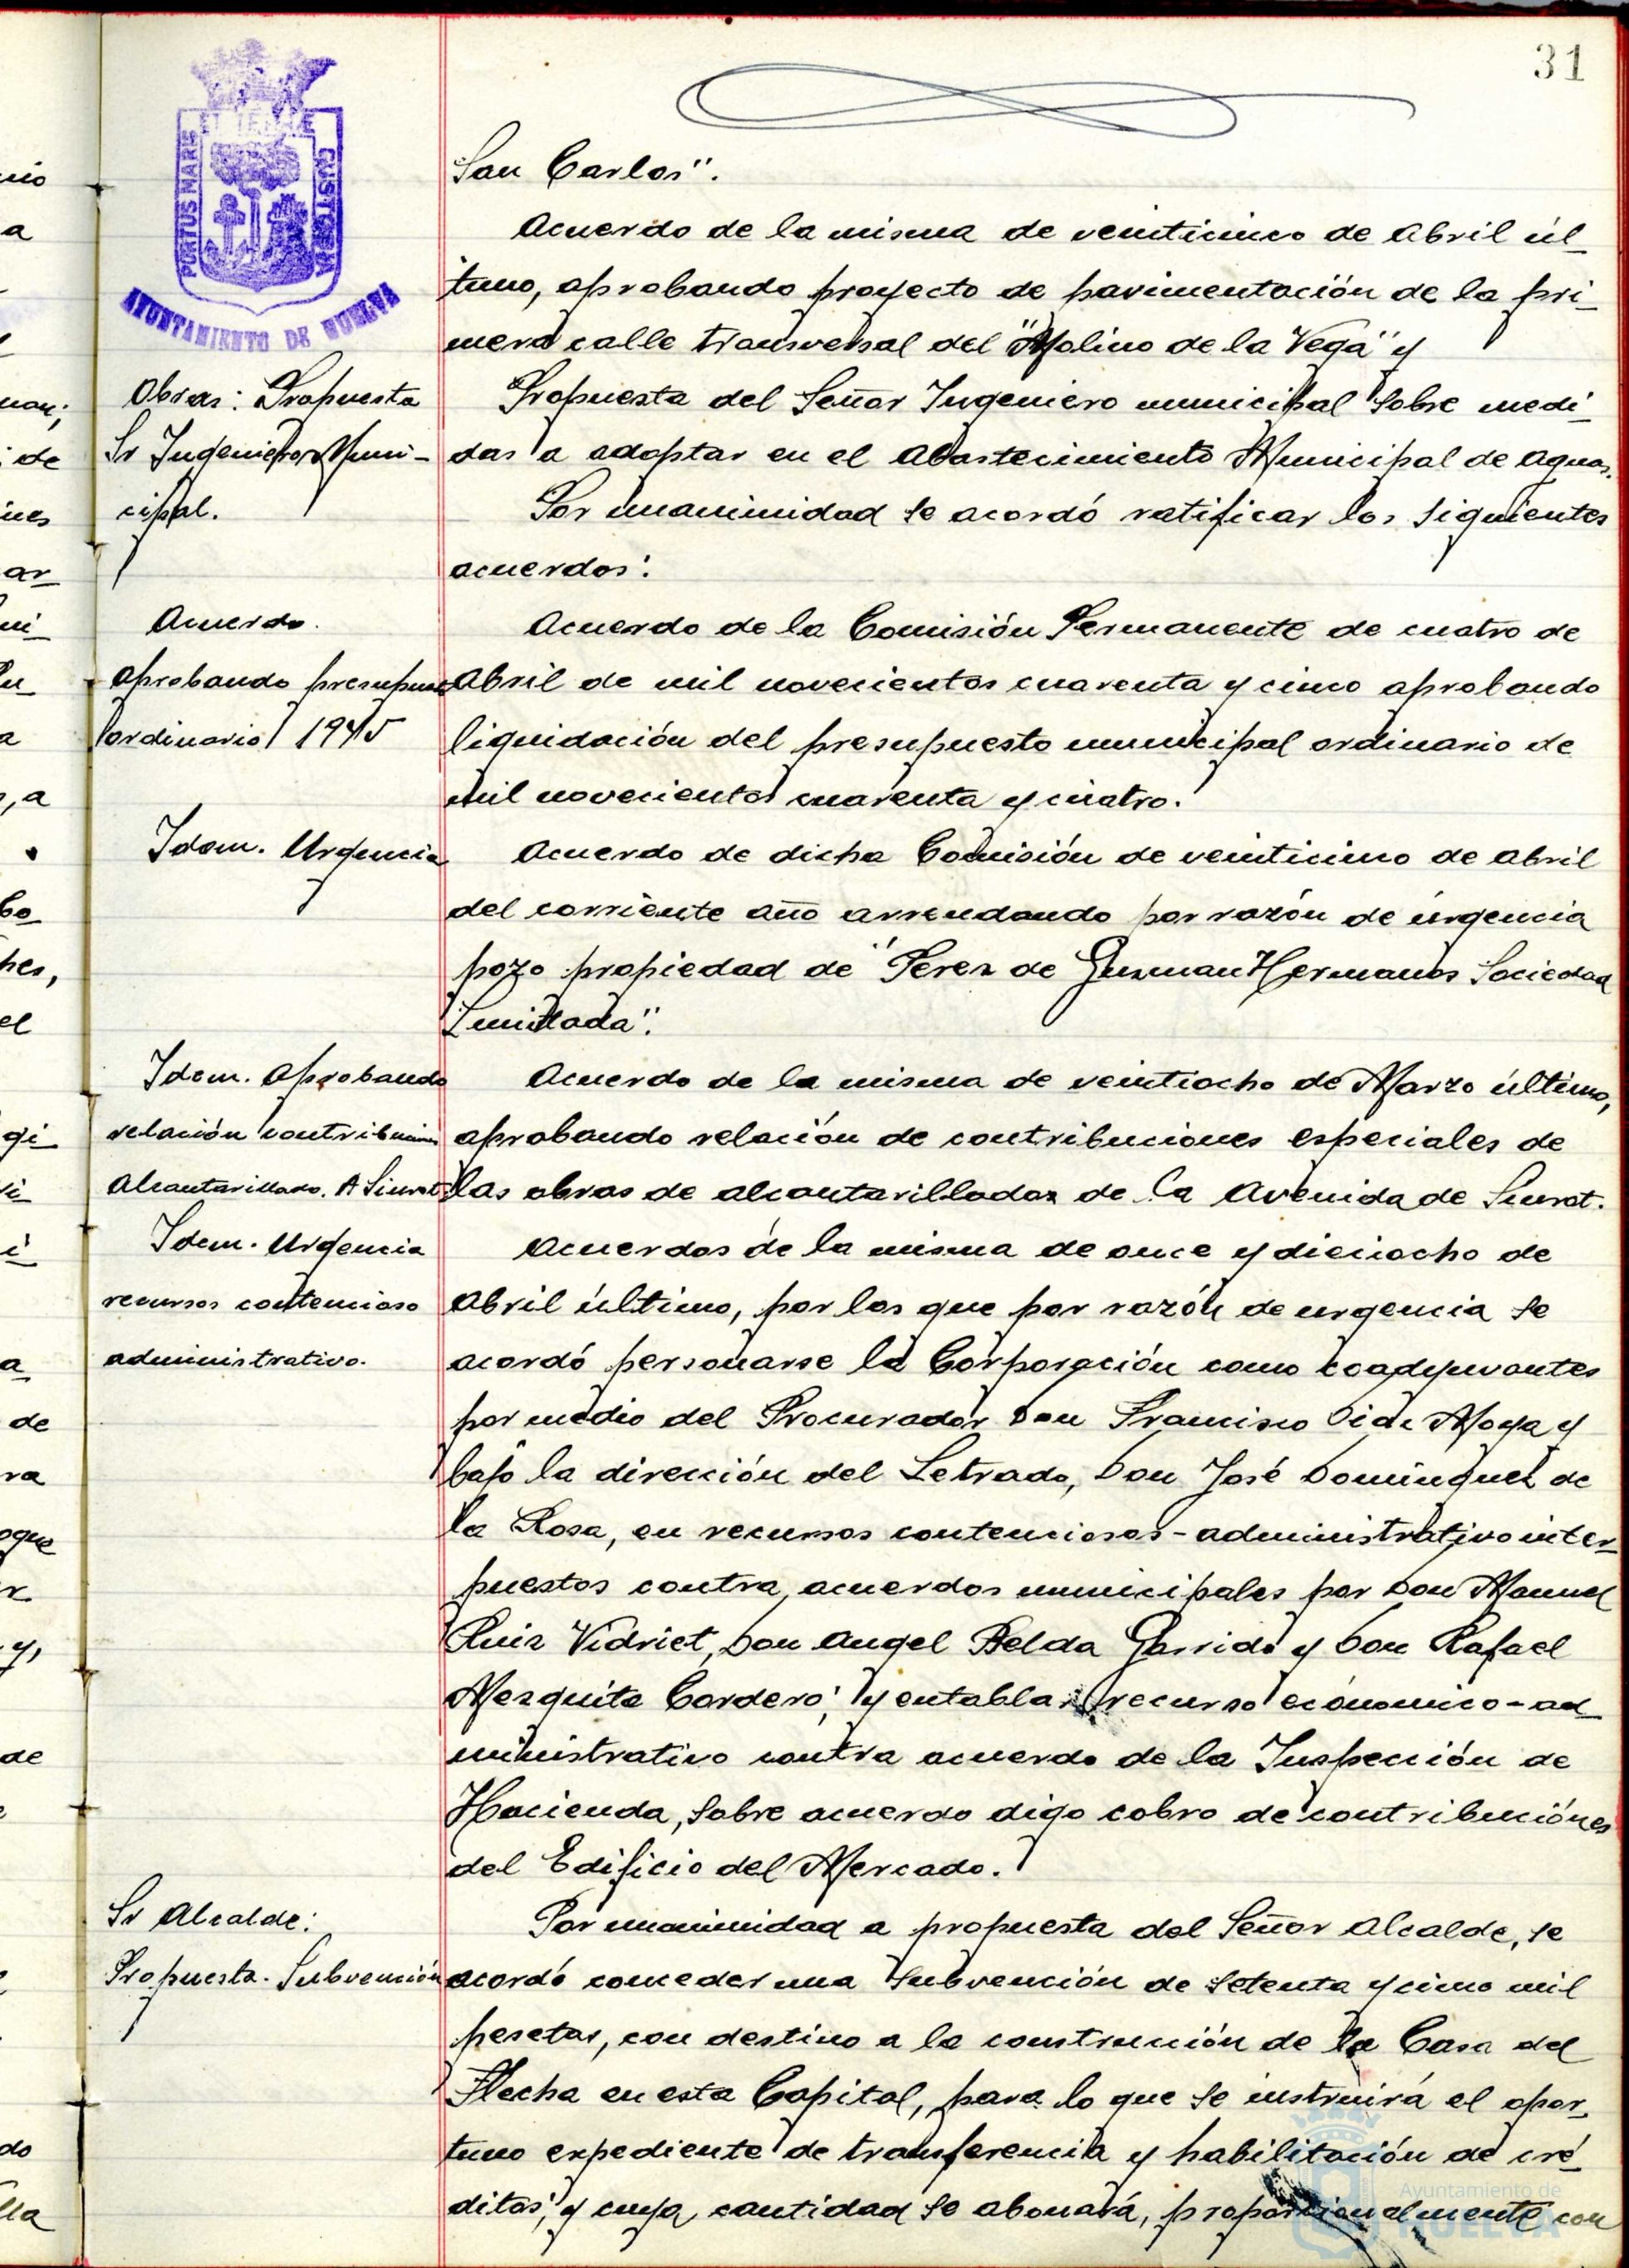 31
PORTUS MARIS
ET TERRAE
CUSTODIA
AYUNTAMIENTO DE HUELVA
San Carlos".
Acuerdo de la misma de veinticinco de Abril úl-
timo, aprobando proyecto de pavimentación de la pri-
mera calle transversal del "Molino de la Vega" y
Obras: Propuesta
Sr Ingeniero Muni-
cipal.
Propuesta del Señor Ingeniero municipal sobre medi-
das a adoptar en el Abastecimiento Municipal de Aguas.
Por unanimidad se acordó ratificar los siguientes
acuerdos:
Acuerdo.
aprobando presupues
ordinario 1945
Acuerdo de la Comisión Permanente de cuatro de
Abril de mil novecientos cuarenta y cinco aprobando
liquidación del presupuesto municipal ordinario de
mil novecientos cuarenta y cuatro.
Idem. Urgencia
Acuerdo de dicha Comisión de veinticinco de Abril
del corriente año arrendando por razón de urgencia
pozo propiedad de "Perez de Guzman Hermanos Sociedad
Limitada".
Idem. Aprobando
relación contribuciones
Alcantarillado. A
Acuerdo de la misma de veintiocho de Marzo último,
aprobando relación de contribuciones especiales de
las obras de alcantarillados de la Avenida de
Idem. Urgencia
recursos contencioso
administrativo.
Acuerdos de la misma de once y dieciocho de
Abril último, por los que por razón de urgencia se
acordó personarse la Corporación como coadyuvantes
por medio del Procurador Don Francisco Moya y
bajo la dirección del Letrado, Don José Dominguez de
la Rosa, en recursos contenciosos-administrativo inter-
puestos contra acuerdos municipales por Don Manuel
Ruiz Vidriet, Don Angel Belda Garrido y Don Rafael
Mezquita Cordero; y entablar recurso económico-ad-
ministrativo contra acuerdo de la Inspección de
Hacienda, sobre acuerdo digo cobro de contribuciónes
del Edificio del Mercado.
Sr Alcalde:
Propuesta. Subvención
Por unanimidad a propuesta del Señor Alcalde, se
acordó conceder una subvención de setenta y cinco mil
pesetas, con destino a la construcción de la Casa del
Flecha en esta Capital, para lo que se instruirá el opor-
tuno expediente de transferencia y habilitación de cré-
ditos; y cuya cantidad se abonará, proporcionalmente con
Ayuntamiento de
HUELVA